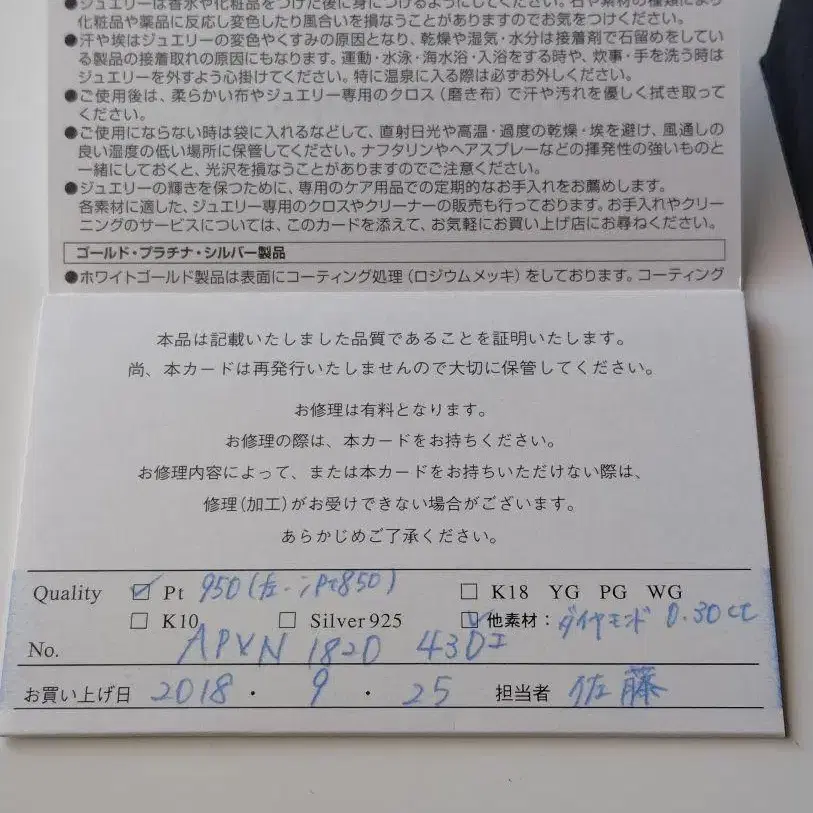 ●ジュエリーは香水や化粧品をつけた後に身につけるようにしてください。石や素材の種類により
化粧品や薬品に反応し変色したり風合いを損なうことがありますのでお気をつけください。
●汗や埃はジュエリーの変色やくすみの原因となり、乾燥や湿気・水分は接着剤で石留めをしてい
る製品の接着取れの原因にもなります。運動・水泳・海水浴・入浴をする時や、炊事・手を洗う時は
ジュエリーを外すよう心掛けてください。特に温泉に入る際は必ずお外しください。
●ご使用後は、柔らかい布やジュエリー専用のクロス(磨き布)で汗や汚れを優しく拭き取って
ください。
●ご使用にならない時は袋に入れるなどして、直射日光や高温・過度の乾燥・埃を避け、風通しの
良い湿度の低い場所に保管してください。ナフタリンやヘアスプレーなどの揮発性の強いものと
一緒にしておくと、光沢を損なうことがありますのでご注意ください。
●ジュエリーの輝きを保つために、専用のケア用品での定期的なお手入れをお薦めします。
各素材に適した、ジュエリー専用のクロスやクリーナーの販売も行っております。お手入れやクリー
ニングのサービスについては、このカードを添えて、お気軽にお買い上げ店にお尋ねください。
ゴールド・プラチナ・シルバー製品
●ホワイトゴールド製品は表面にコーティング処理(ロジウムメッキ)をしております。コーティング
本品は記載いたしました品質であることを証明いたします。
尚、本カードは再発行いたしませんので大切に保管してください。
お修理は有料となります。
お修理の際は、本カードをお持ちください。
お修理内容によって、または本カードをお持ちいただけない際は、
修理(加工)がお受けできない場合がございます。
あらかじめご了承ください。
Quality ☑ Pt 950 (Pt850) □ K18 YG PG WG
□ K10 □ Silver925 ☑ 他素材:ダイヤモンド 0.30ct
No. APVN 1820 43DI
お買い上げ日 2018・9・25 担当者 佐藤